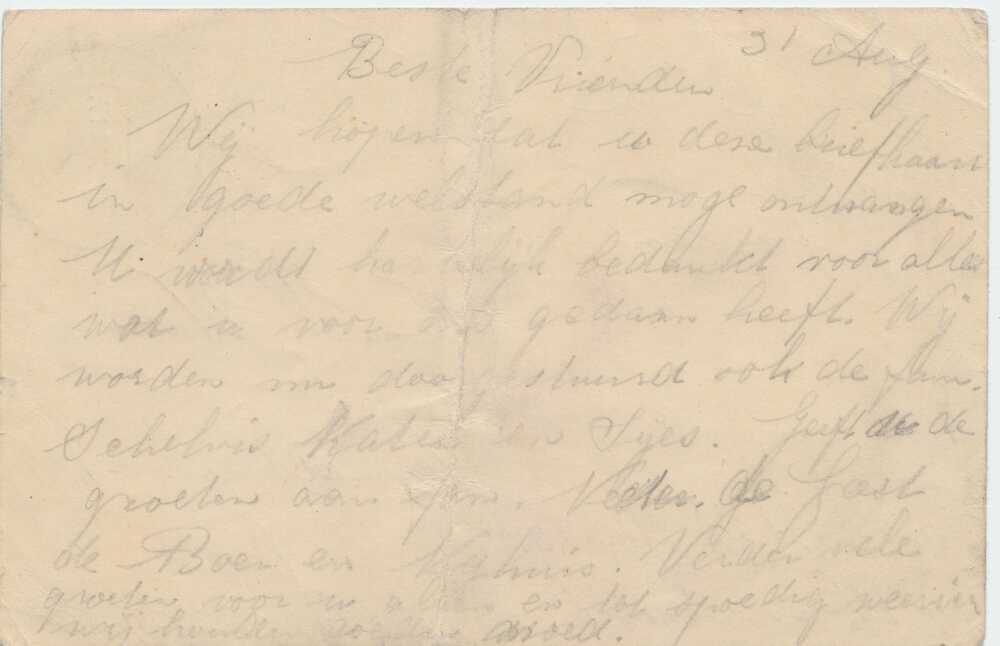 31 Aug
Beste Vrienden
Wij hopen dat u deze briefkaart
in goede welstand moge ontvangen
U wordt hartelijk bedankt voor alles
wat u voor ons gedaan heeft. Wij
worden nu doorgestuurd ook de fam.
Schelvis Kater en Sjes. Geeft u de
groeten aan fam. de Gast
de Boer en Nijhuis. Verder vele
groeten voor u allen en tot spoedig weerzien
wij houden goeden moed.